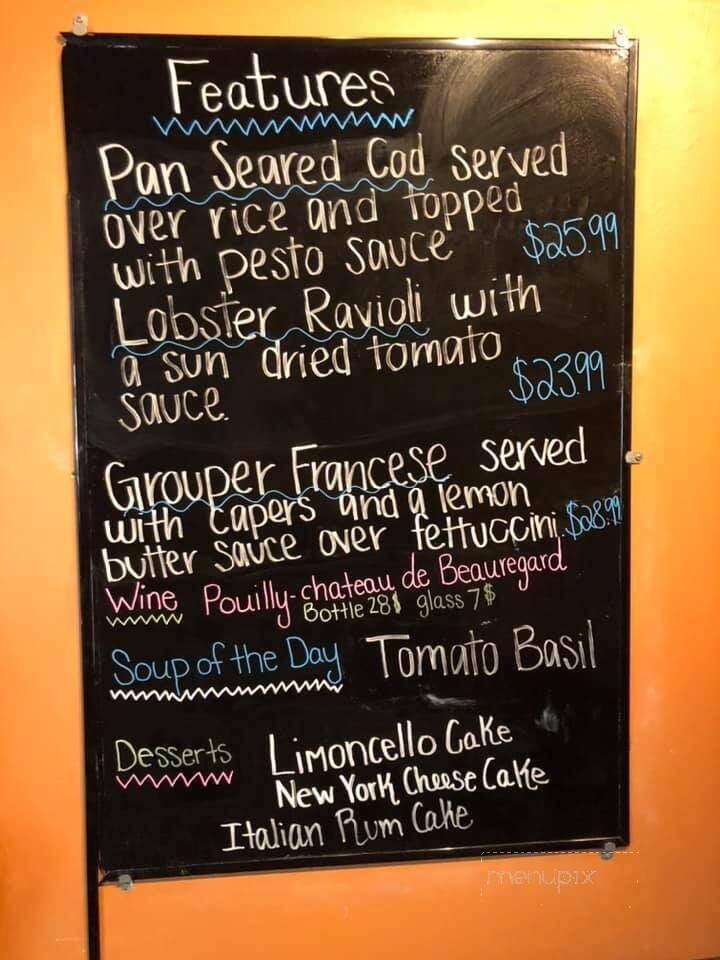 Features
Pan Seared Cod served
over rice and topped
with pesto sauce $25.99
Lobster Ravioli with
a sun dried tomato
sauce. $23.99
Grouper Francese served
with capers and a lemon
butter sauce over fettuccini $28.99
Wine Pouilly-chateau de Beauregard
Bottle 28$ glass 7$
Soup of the Day Tomato Basil
Desserts Limoncello Cake
New York Cheese Cake
Italian Rum Cake
menupix